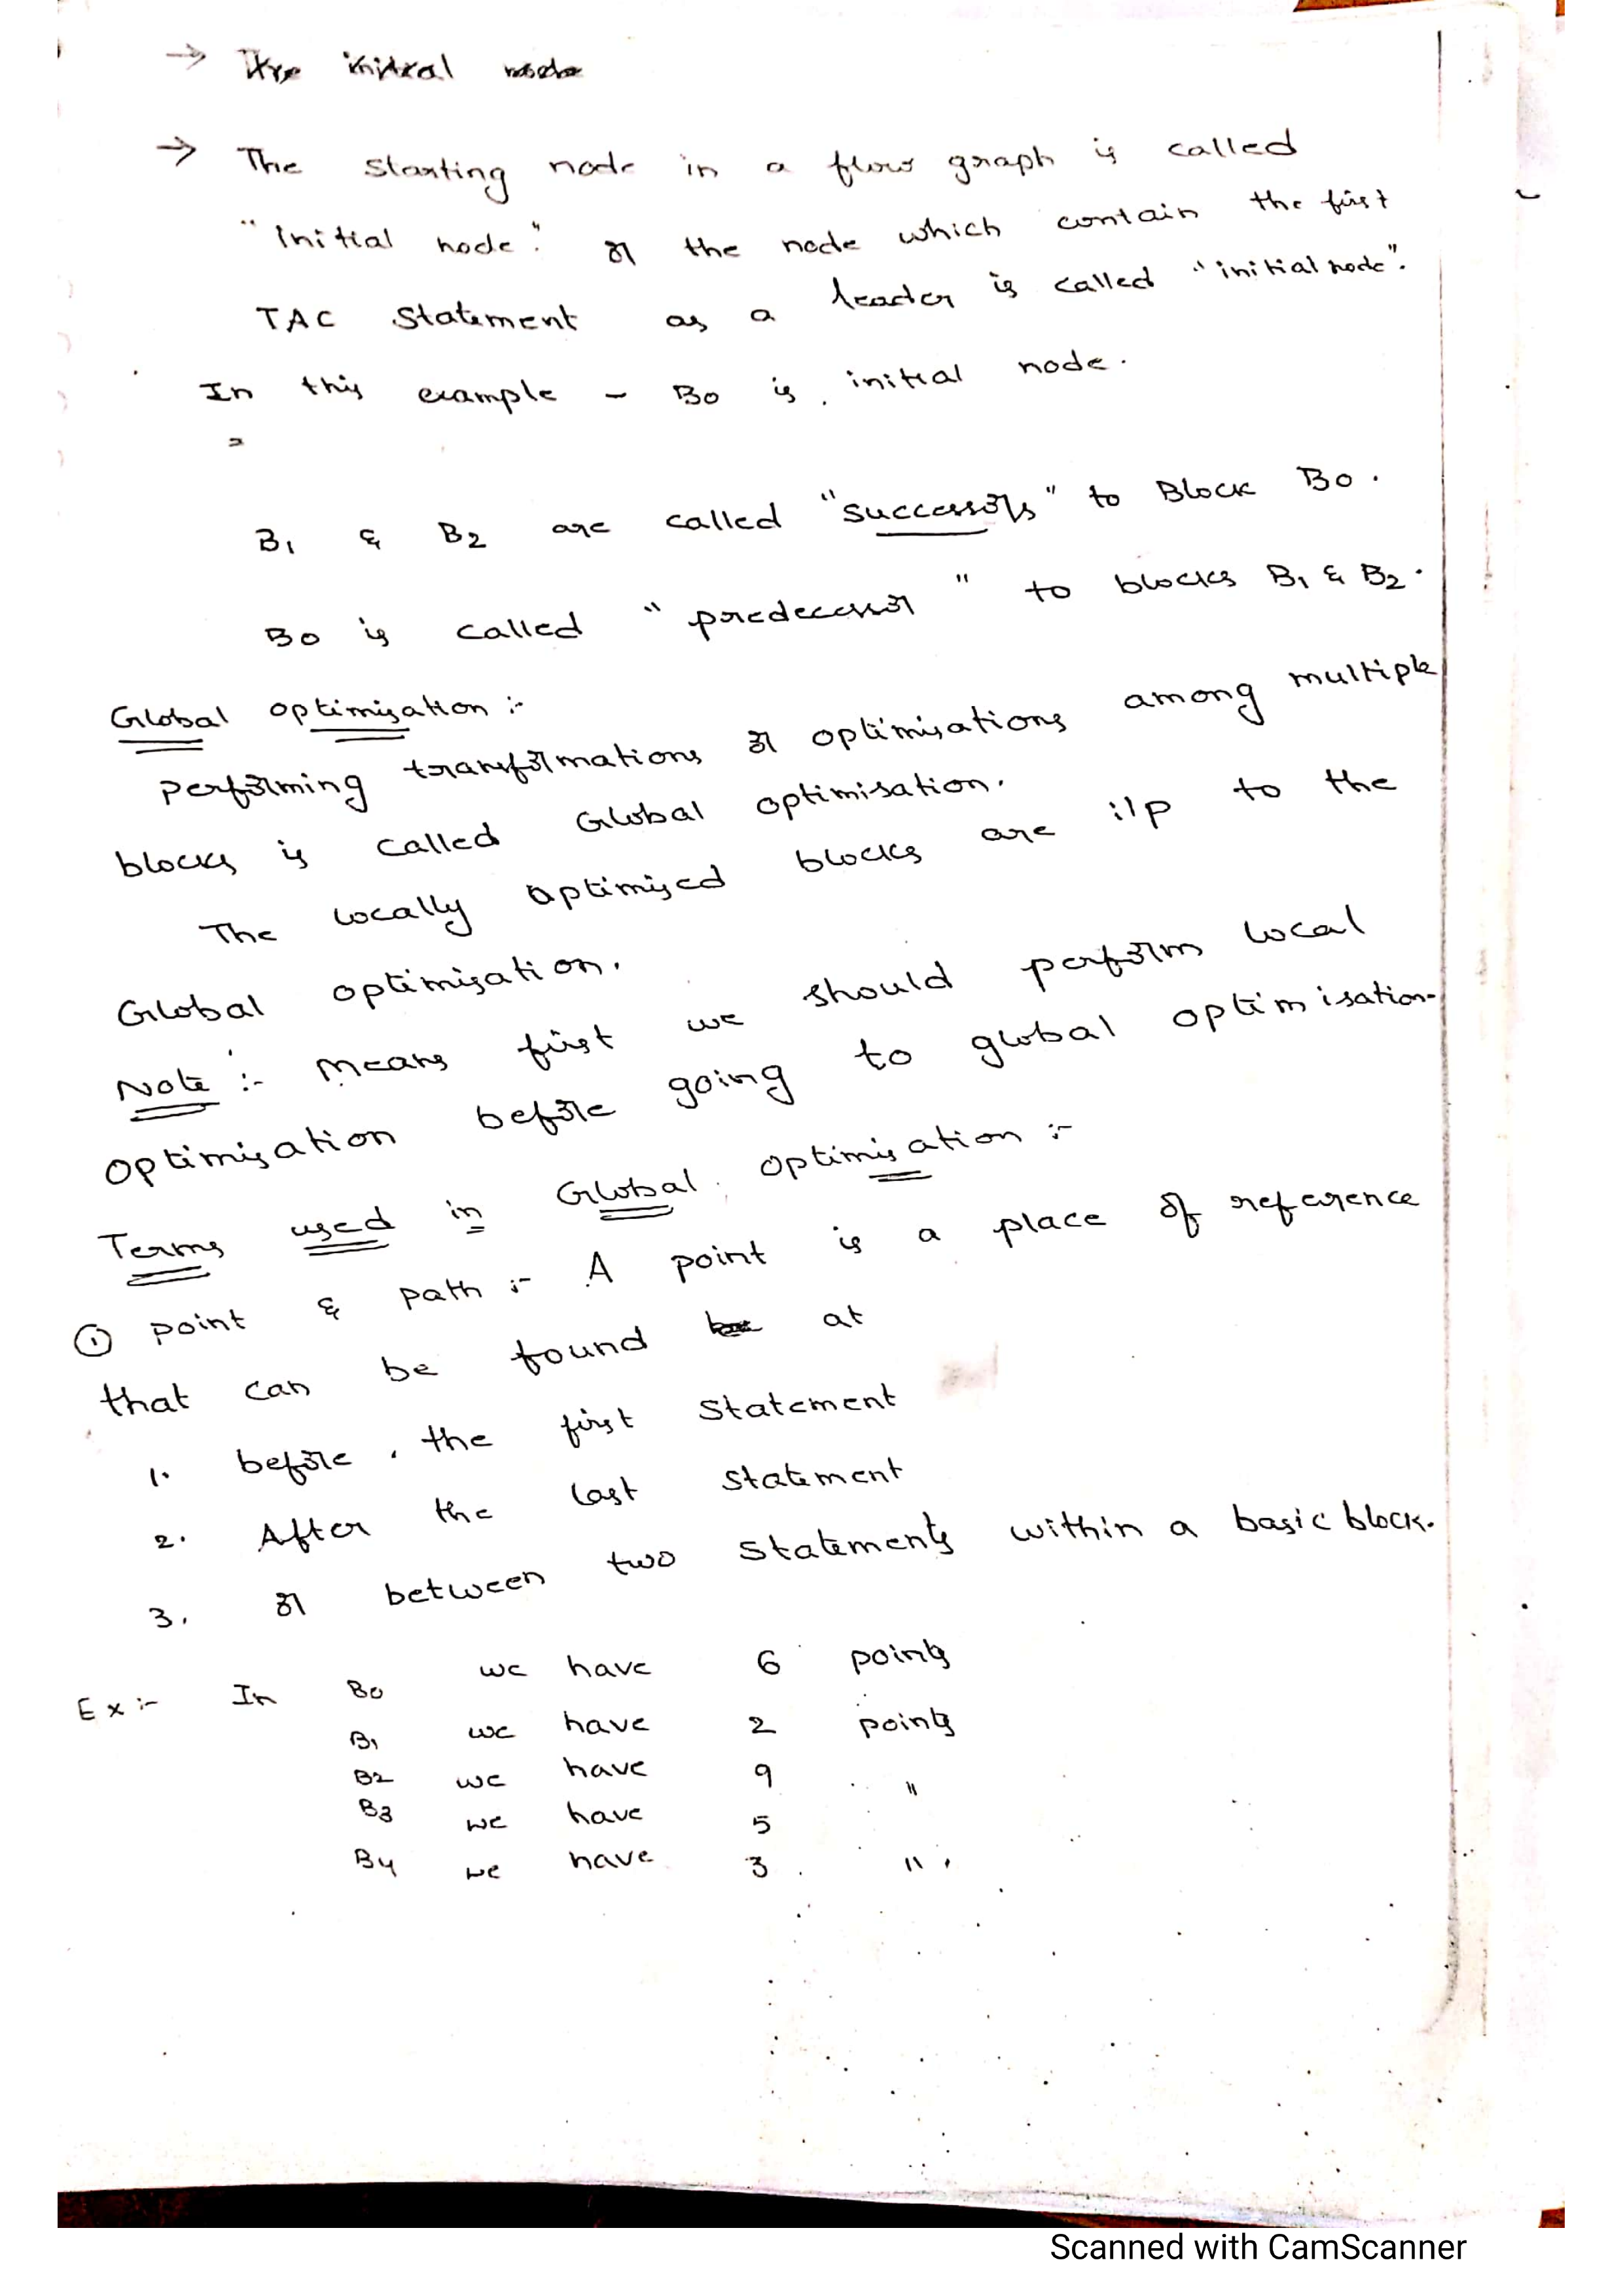 → The initial node
→ The starting node in a flow graph is called
"initial node". or the node which contain the first
TAC Statement as a leader is called "initial node".
In this example - B0 is initial node.
B1 & B2 are called "successors" to Block B0.
B0 is called "predecessor" to blocks B1 & B2.
Global optimisation :-
Performing transformations or optimisations among multiple
blocks is called Global optimisation.
The locally optimised blocks are i/p to the
Global optimisation.
Note :- Means first we should perform local
optimisation before going to global optimisation.
Terms used in Global optimisation :-
① point & path :- A point is a place of reference
that can be found at
1. before the first statement
2. After the last statement
3. or between two statements within a basic block.
Ex :- In B0 we have 6 points
B1 we have 2 points
B2 we have 9 "
B3 we have 5
B4 we have 3 "
Scanned with CamScanner